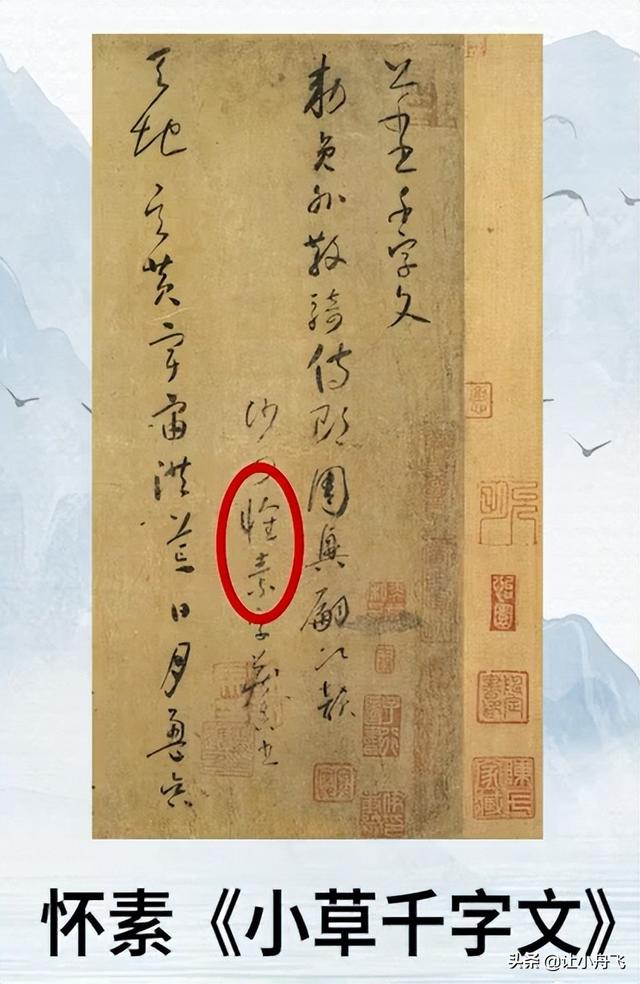 千字文
敕員外散騎侍郎周興嗣次韻
沙門懷素字藏真書
天地玄黃宇宙洪荒日月盈昃
怀素《小草千字文》
头条 @让小舟飞